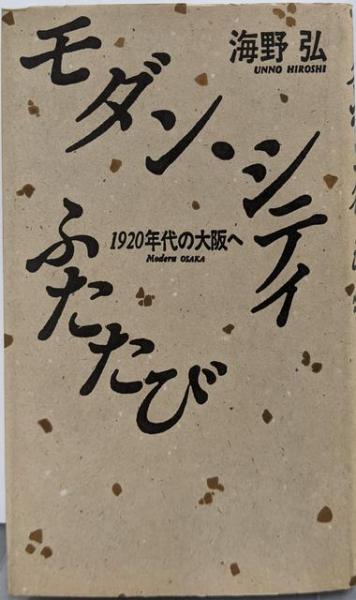 海野 弘
UNNO HIROSHI
モダン・シティ
ふたたび
1920年代の大阪へ
Modern OSAKA